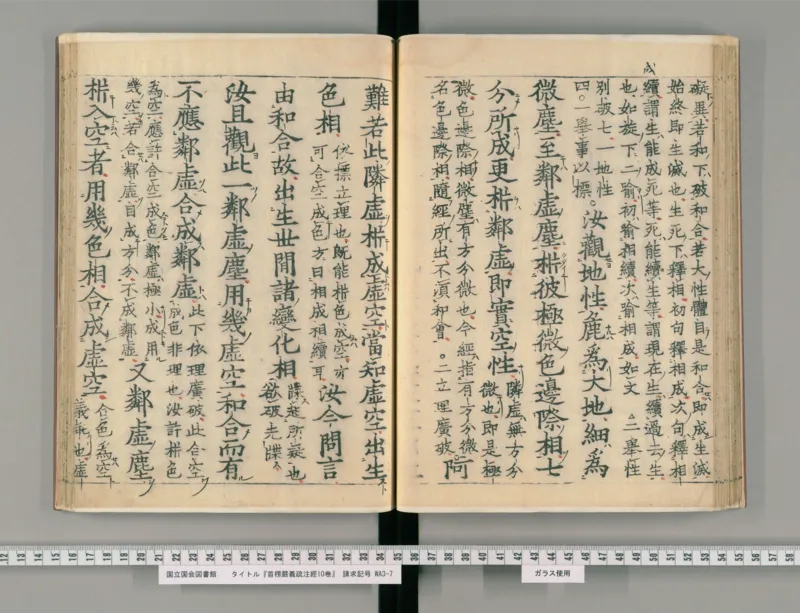 成
礙畢若和下破和合若大性體自是和合即成生滅
始終即生滅也生死下釋相初句釋相成次句釋相
續謂生能成死等死能續生等謂現在生續過去生
也如旋下二喻初喻相續次喻相成如文 二舉性
別破七一地性
四○一舉事以標○汝觀地性麁為大地細為
微塵至鄰虛塵析彼極微色邊際相七
分所成更析鄰虛即實空性隣虛無方分
微也即是極
微色邊際相微塵有方分微也今經指有方分微
名色邊際相隨經所出不須和會○二立理廣破阿
難若此隣虛析成虛空當知虛空出生
色相依標立理也既能析色成空亦
可合空成色方曰相成相續耳汝今問言
由和合故出生世間諸變化相牒迷所疑也
欲破先牒
汝且觀此一鄰虛塵用幾虛空和合而有
不應鄰虛合成鄰虛此下依理廣破此合空
成色非理也汝許析色
為空應許合空成色鄰虛極小成用
幾空若合鄰虛自成方分不成鄰虛又鄰虛塵
析入空者用幾色相合成虛空合色為空
義亦也虛
国立国会図書館 タイトル『首楞嚴義疏注經10巻』 請求記号 WA3-7
ガラス使用